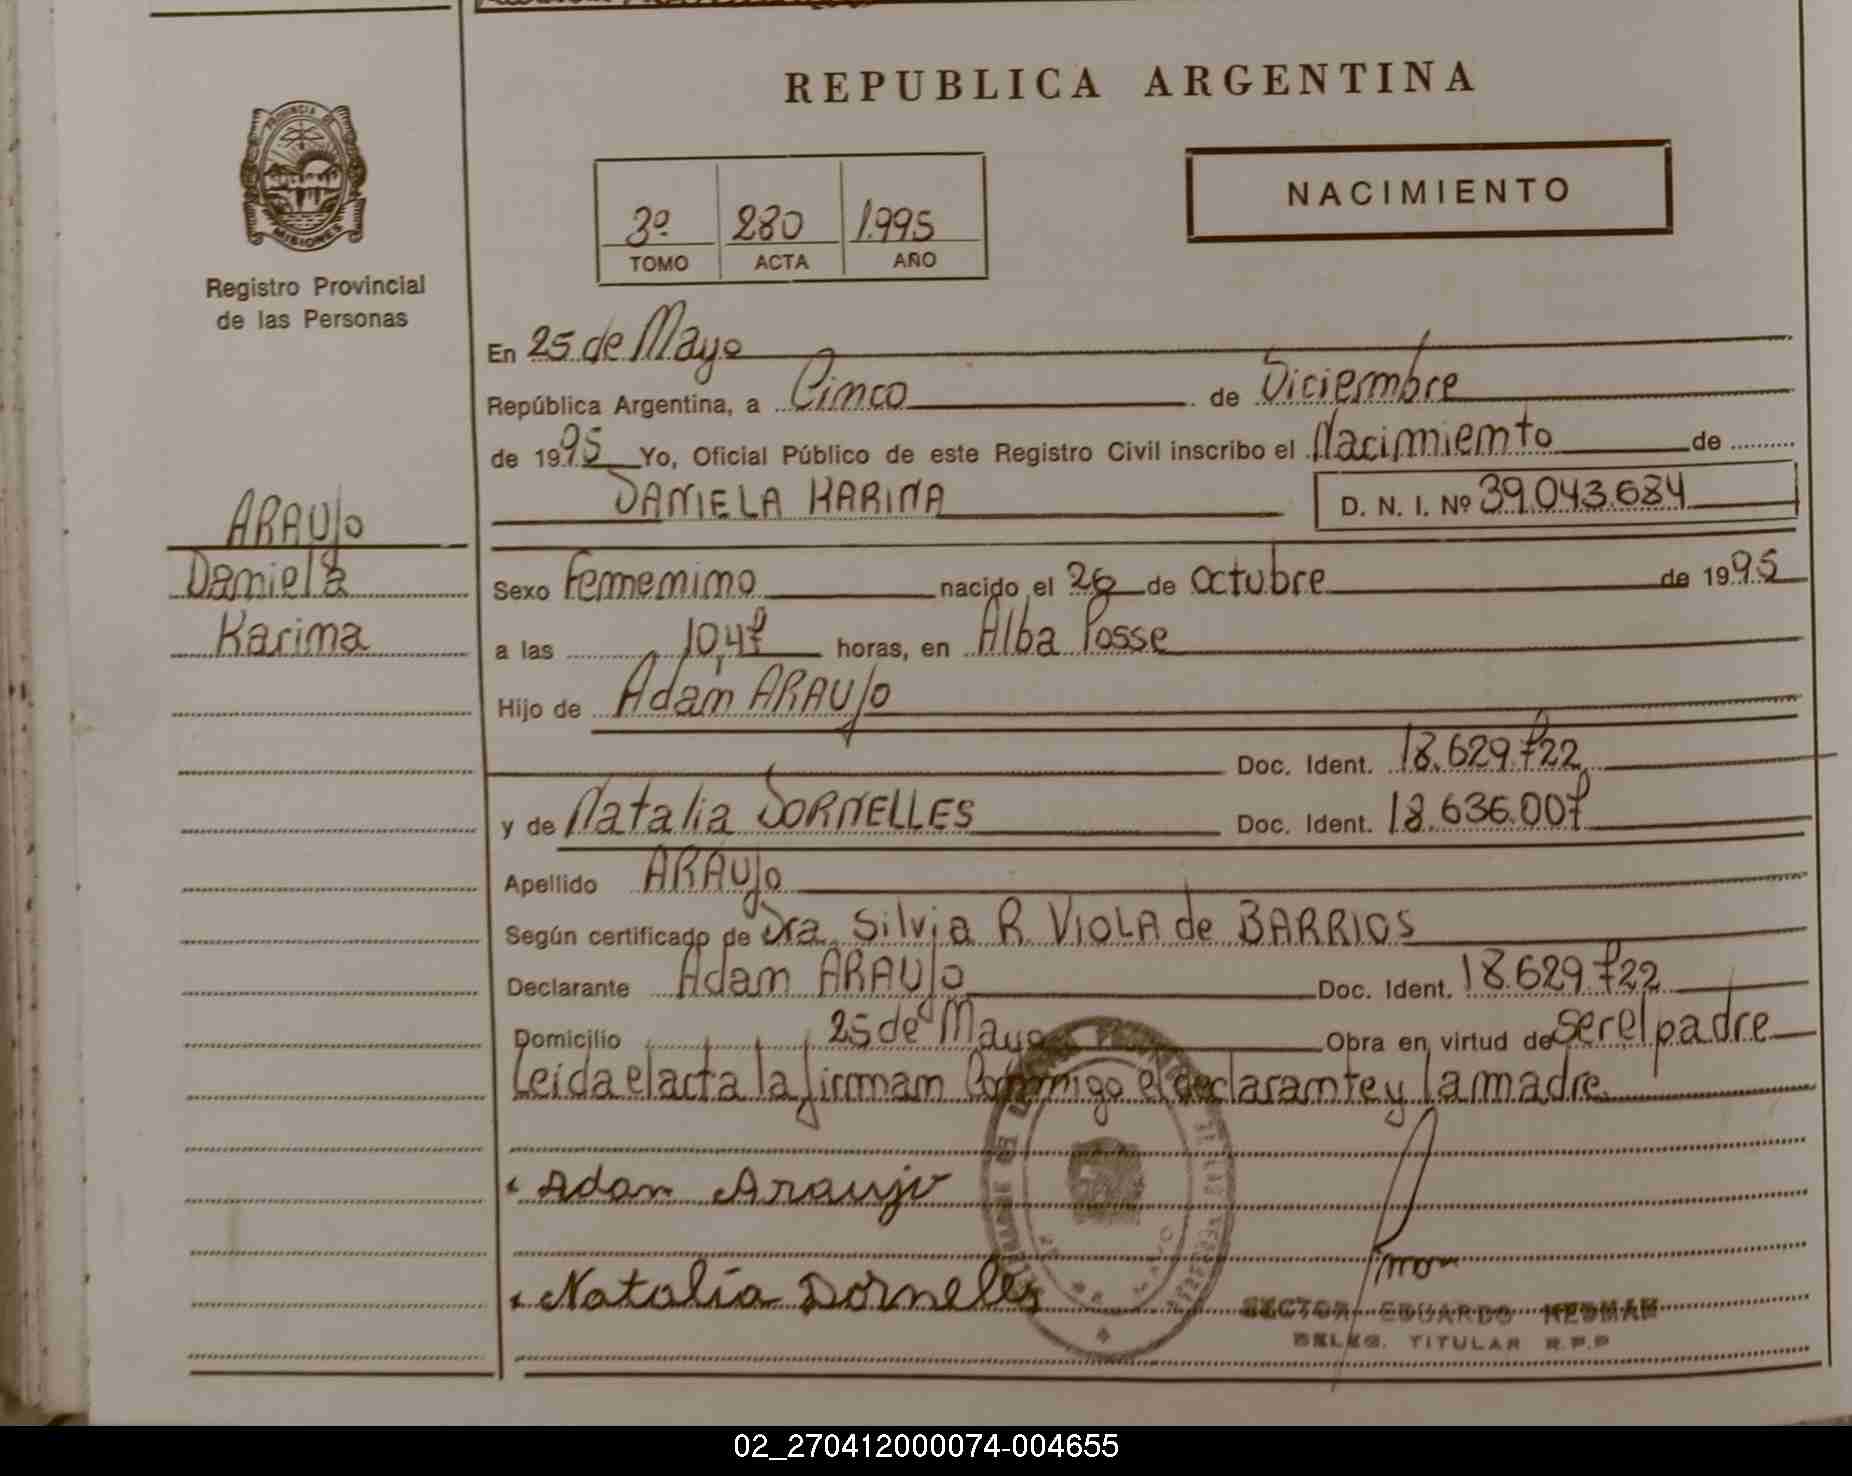 REPUBLICA ARGENTINA
PROVINCIA DE
MISIONES
Registro Provincial
de las Personas
NACIMIENTO
3º 280 1.995
TOMO ACTA AÑO
En 25 de Mayo
República Argentina, a Cinco de Diciembre
de 1995 Yo, Oficial Público de este Registro Civil inscribo el Nacimiento de
DANIELA KARINA D. N. I. Nº 39.043.684
ARAUJO
Daniela
Karina
Sexo Femenino nacido el 26 de octubre de 1995
a las 10,47 horas, en Alba Posse
Hijo de Adan ARAUJO
Doc. Ident. 18.629.722
y de Natalia DORNELLES Doc. Ident. 18.636.007
Apellido ARAUJO
Según certificado de Dra. Silvia R. VIOLA de BARRIOS
Declarante Adan ARAUJO Doc. Ident. 18.629.722
Domicilio 25 de Mayo Obra en virtud de ser el padre
Leída el acta la firman Conmigo el declarante y la madre.
Adan Araujo
Natalia Dornelles
EDUARDO
DELEG. TITULAR R.P.P
02_270412000074-004655